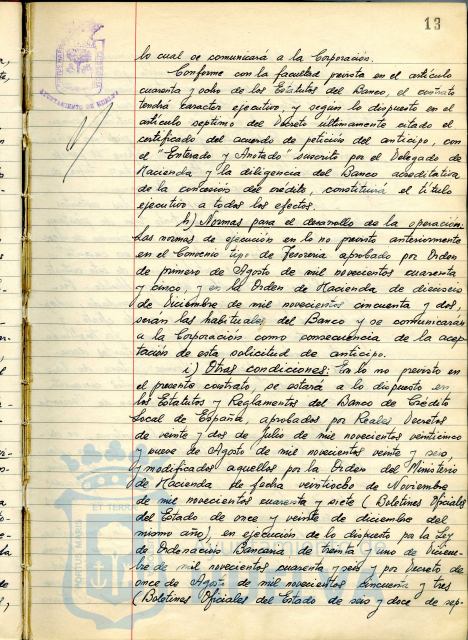 13
AYUNTAMIENTO DE HUELVA
lo cual se comunicará a la Corporación.
Conforme con la facultad prevista en el artículo
cuarenta y ocho de los Estatutos del Banco, el contrato
tendrá carácter ejecutivo, y según lo dispuesto en el
artículo septimo del Decreto ultimamente citado el
certificado del acuerdo de petición del anticipo, con
el "Enterado y Anotado" suscrito por el Delegado de
Hacienda y la diligencia del Banco acreditativa
de la concesión del crédito, constituirá el título
ejecutivo a todos los efectos.
h) Normas para el desarrollo de la operación:
Las normas de ejecución en lo no previsto anteriormente
en el Convenio tipo de Tesorería aprobado por Orden
de primero de Agosto de mil novecientos cuarenta
y cinco, y en la Orden de Hacienda de dieciseis
de Diciembre de mil novecientos cincuenta y dos,
serán las habituales del Banco y se comunicarán
a la Corporación como consecuencia de la acep-
tación de esta solicitud de anticipo.
i) Otras condiciones: En lo no previsto en
el presente contrato, se estará a lo dispuesto en
los Estatutos y Reglamentos del Banco de Crédito
Local de España, aprobados por Reales Decretos
de veinte y dos de Julio de mil novecientos veinticinco
y nueve de Agosto de mil novecientos veinte y seis,
y modificados aquellos por la Orden del Ministerio
de Hacienda de fecha veintiocho de Noviembre
de mil novecientos cuarenta y siete (Boletines Oficiales
del Estado de once y veinte de diciembre del
mismo año), en ejecución de lo dispuesto por la Ley
de Ordenación Bancaria de treinta y uno de Diciem-
bre de mil novecientos cuarenta y seis y por Decreto de
once de Agosto de mil novecientos cincuenta y tres
(Boletines Oficiales del Estado de seis y doce de sep-
PORTUS MARIS ET TERRAE